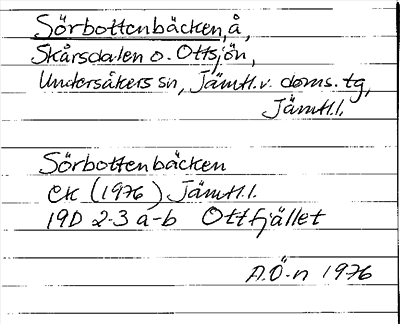 Sörbottenbäcken, å,
Skårsdalen o. Ottsjön,
Undersåkers sn, Jämtl. v. doms. tg,
Jämtl. l.
Sörbottenbäcken
Ek (1976) Jämtl. l.
19D 2-3 a-b Ottfjället
A.Ö-n 1976